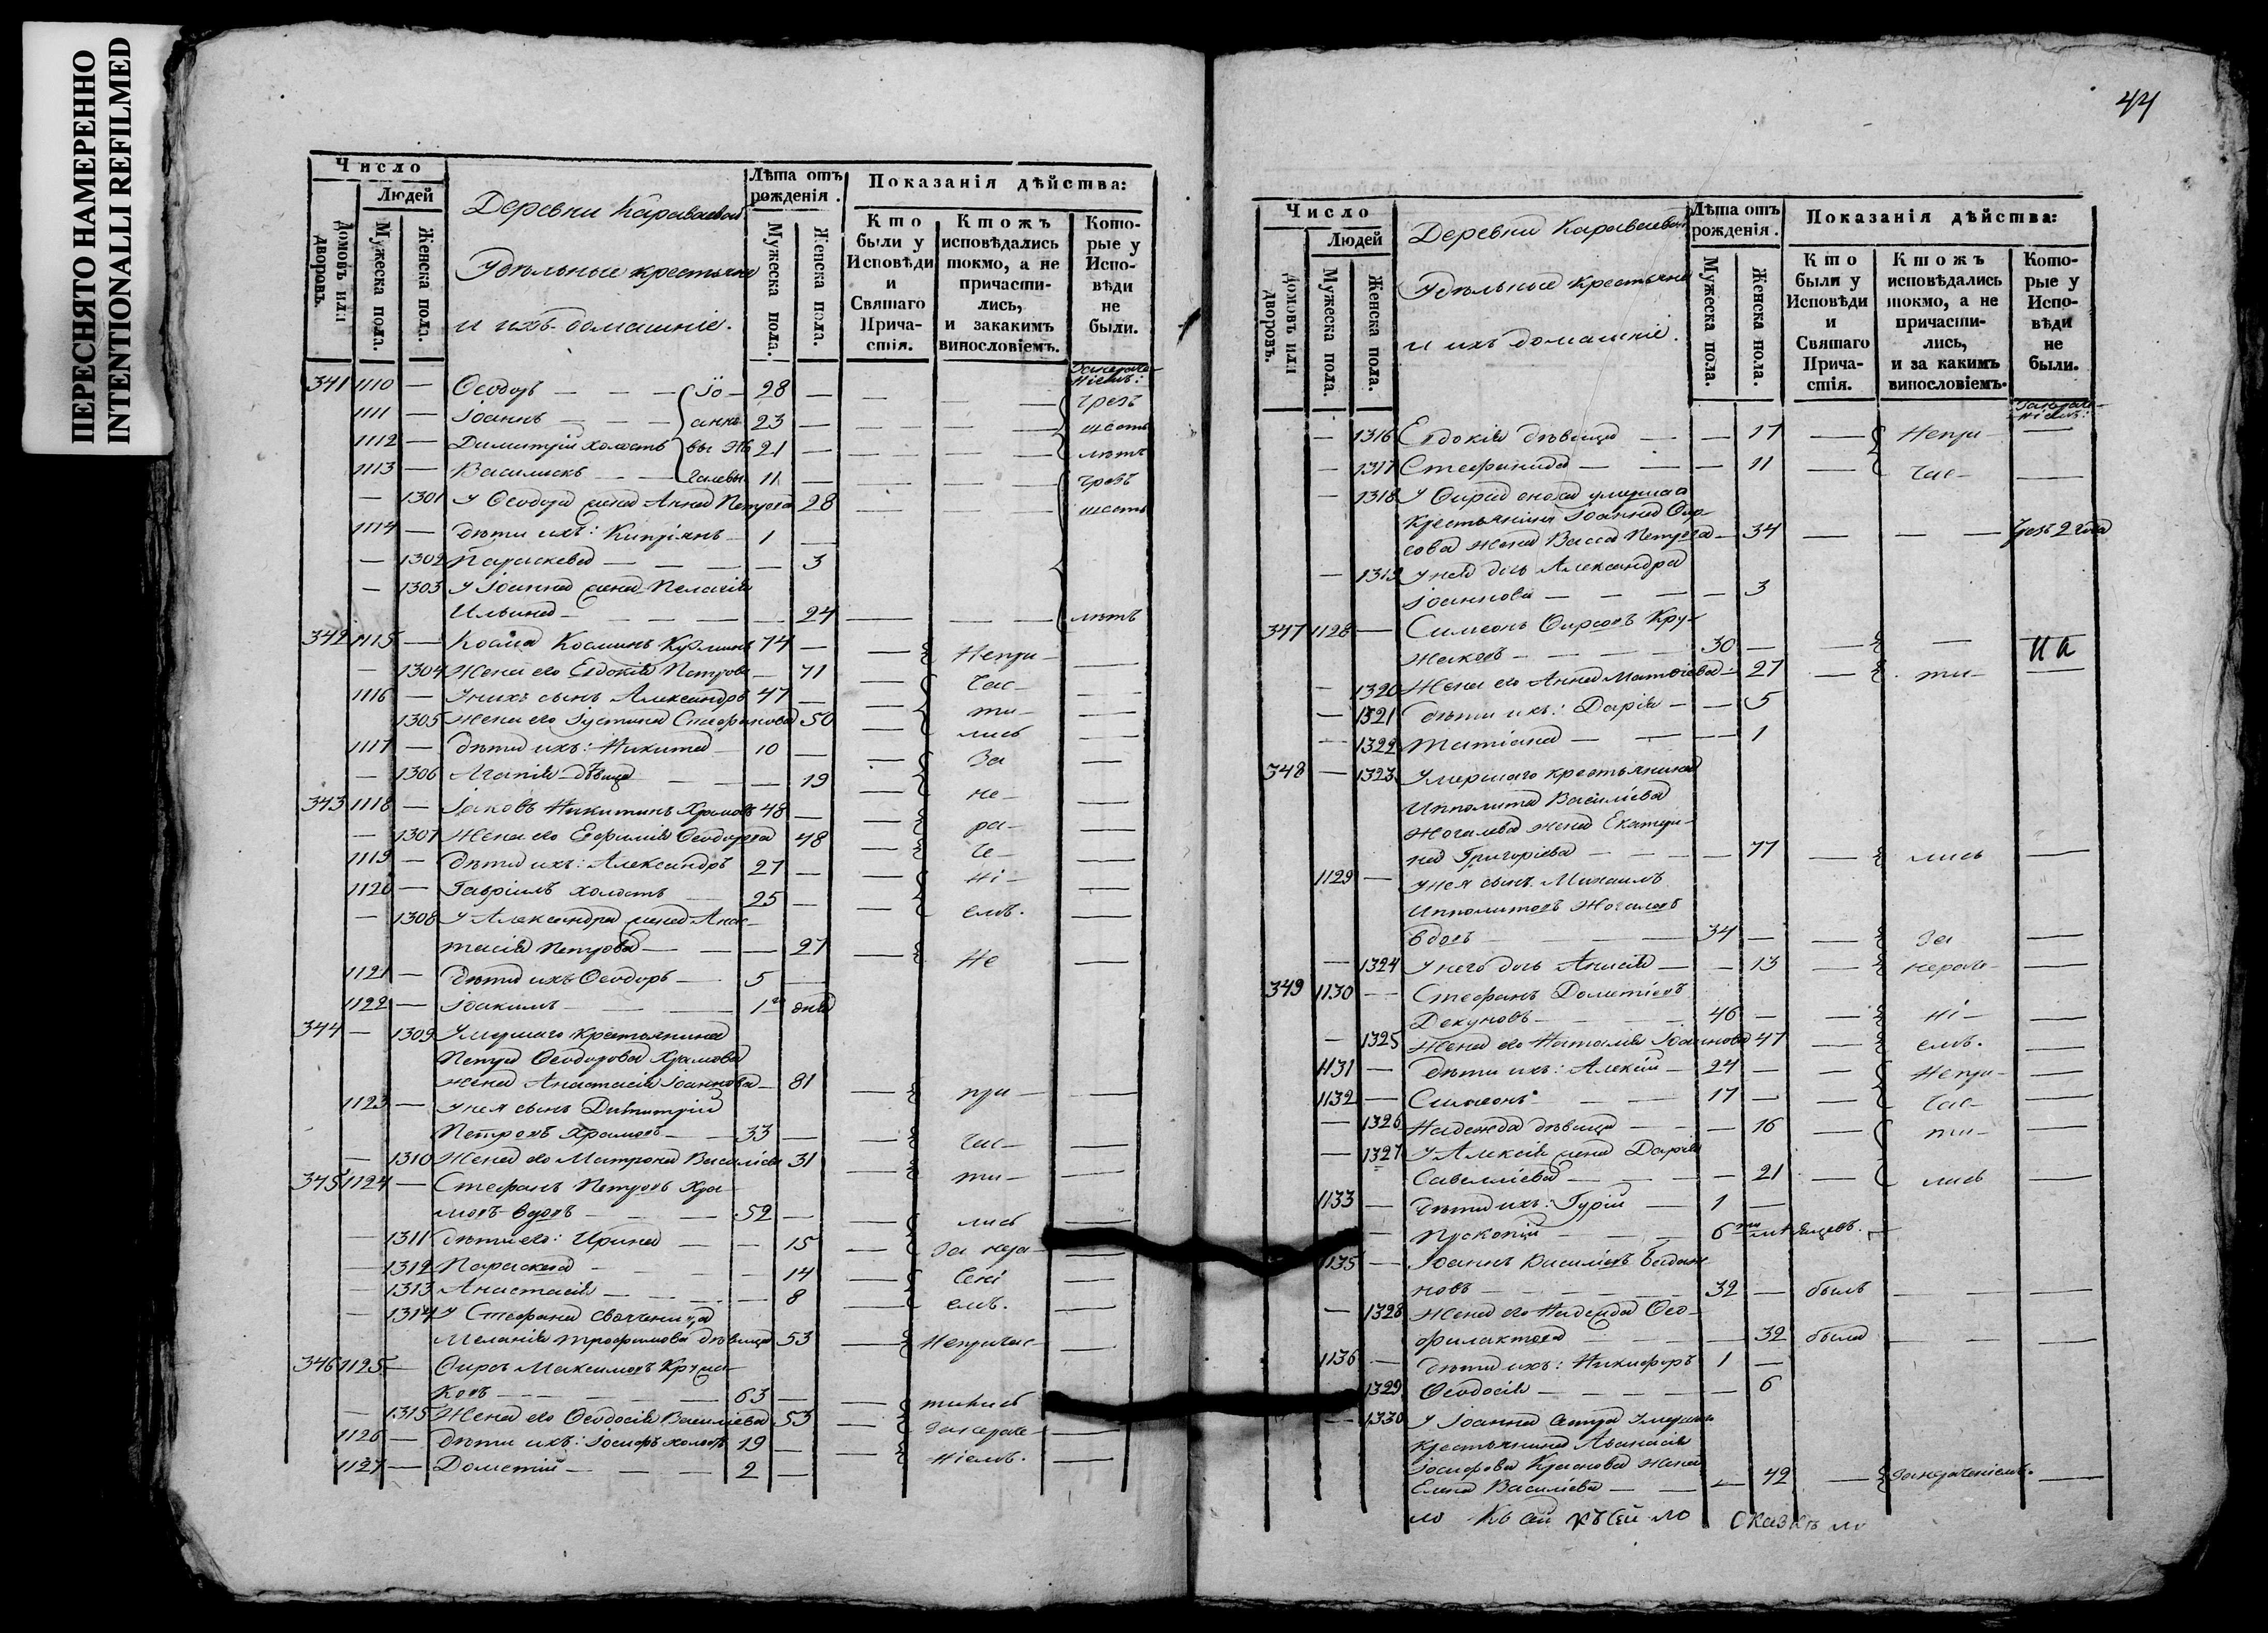 ПЕРЕСНЯТО НАМЕРЕННО
INTENTIONALLI REFILMED
Число
Людей
Домовъ или дворовъ.
Мужеска пола.
Женска пола.
Деревни Караваевой
Удѣльные крестьяне
и ихъ домашніе.
Лѣта отъ рожденія.
Мужеска пола.
Женска пола.
Показанія дѣйства:
Кто были у Исповѣди и Святаго Причастія.
Ктожъ исповѣдались токмо, а не причастились, и закакимъ винословіемъ.
Которые у Исповѣди не были.
341 1110 — Ѳеодоръ — — — 28 —
1111 — Іоаннъ — — 23 —
1112 — Димитрій холостъ 21 —
1113 — Василискъ — — 11 —
— 1301 У Ѳеодора жена Анна Петрова 28
1114 — Дѣти ихъ: Кипріанъ 1 —
— 1302 Параскева — — — 3
— 1303 У Іоанна жена Пелагія
Ильина — — — 24 лѣтъ
342 1115 — Косма Косминъ Кузминъ 74 — Непри-
— 1304 Жена его Евдокія Петрова — 71 час-
1116 — У нихъ сынъ Александръ 47 — ти-
1305 Жена его Іустина Стефанова 50 лись
1117 — Дѣти ихъ: Никита 10 — За
— 1306 Агапія дѣвица — 19 не-
343 1118 — Іаковъ Никитинъ Храмовъ 48 — ра-
— 1307 Жена его Евфимія Ѳеодорова 48 че-
1119 — Дѣти ихъ: Александръ 27 — ні-
1120 — Гавріилъ холостъ 25 — емъ.
— 1308 У Александра жена Анас-
тасія Петрова — — 27 Не
1121 — Дѣти ихъ Ѳеодоръ — 5
1122 — Іоакимъ — — дня
344 — 1309 Умершаго крестьянина
Петра Ѳеодорова Храмова
жена Анастасія Іоаннова — 81 при-
1123 — У нея сынъ Димитрій
Петровъ Храмовъ — 33 — час-
— 1310 Жена его Матрона Василіева 31 ти-
345 1124 — Стефанъ Петровъ Хра-
мовъ вдовъ — — 52 — лись
— 1311 Дѣти его: Ирина — — 15 За нера-
— 1312 Параскева — — 14 чені
— 1313 Анастасія — — — 8 емъ.
— 1314 У Стефана своячени ца
Меланія Трофимова дѣвица 53 Непричас-
346 1125 — Ѳирсъ Максимовъ Кружа-
ковъ — — — 63 — тились
— 1315 Жена его Ѳеодосія Василіева 53 Занераче-
1126 — Дѣти ихъ: Іосифъ холостъ 19 — ніемъ.
1127 — Дометій — — 2 —
44
Число
Людей
Домовъ или дворовъ.
Мужеска пола
Женска пола.
Деревни Караваевой
Удѣльные крестьяне
и ихъ домашніе.
Лѣта отъ рожденія.
Мужеска пола.
Женска пола.
Показанія дѣйства:
Кто были у Исповѣди и Святаго Причастія.
Ктожъ исповѣдались токмо, а не причастились, и за какимъ винословіемъ.
Которые у Исповѣди не были.
— 1316 Евдокія дѣвица — — 17 — Непри- —
— 1317 Стефанида — — — 11 — час- —
— 1318 У Ѳирса сноха умершаго
крестьянина Іоанна Ѳир-
сова жена Васса Петрова — 34 — — Чрезъ 2 года
— 1319 У нея дочь Александра
Іоаннова — — — 3
347 1128 — Симеонъ Ѳирсовъ Кру-
жаковъ — — 30 —
— 1320 Жена его Анна Матѳіева — 27 — ти- —
— 1321 Дѣти ихъ: Дарія — — 5
— 1322 Татіана — — — 1
348 — 1323 Умершаго крестьянина
Ипполита Василіева
Жогалева жена Екатери-
на Григоріева — — 77 — лись —
1129 — У нея сынъ Михаилъ
Ипполитовъ Жогалевъ
вдовъ — — 34 — — За —
— 1324 У него дочь Анисія — — 13 — нераче- —
349 1130 — Стефанъ Дометіевъ
Декуновъ — — 46 — — ні- —
— 1325 Жена его Наталія Іоаннова 47 — емъ. —
1131 — Дѣти ихъ: Алексій — 24 — — Непри- —
1132 — Симеонъ — — 17 — — час- —
— 1326 Надежда дѣвица — — 16 — ти- —
— 1327 У Алексія жена Дарія
Савелліева — — 21 — лись —
1133 — Дѣти ихъ: Гурій — 1 —
— Прокопій — — 6 мѣсяцевъ.
1135 — Іоаннъ Василіевъ
новъ — — 32 — былъ — —
— 1328 Жена его Надежда Ѳео-
филактова — — 32 была — —
1136 — Дѣти ихъ: Никифоръ 1 —
1329 Ѳеодосія — — — 6
— 1330 У Іоанна сестра умершаго
крестьянина Аѳанасія
Іосифова Краснова жена
Елена Василіева — — 42 — Занераченіемъ. —
сказкѣ